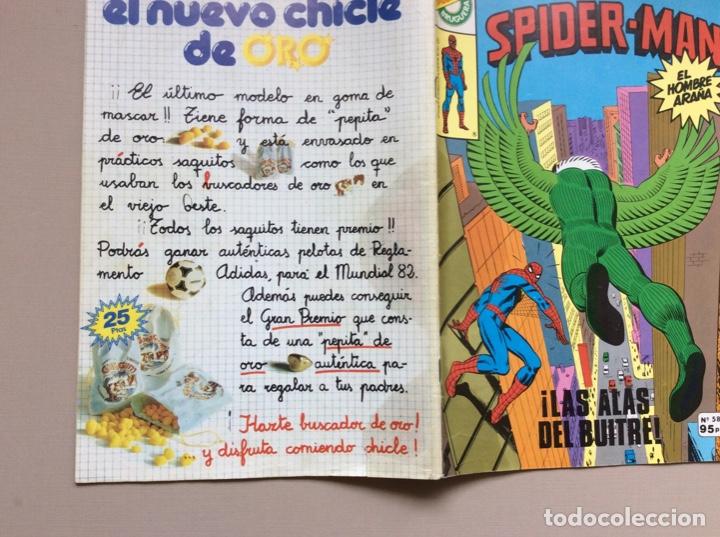 el nuevo chicle
de ORO
¡¡ El último modelo en goma de
mascar!! Tiene forma de "pepita"
de oro y está envasado en
prácticos saquitos como los que
usaban los buscadores de oro en
el viejo Oeste.
¡¡Todos los saquitos tienen premio!!
Podrás ganar auténticas pelotas de Regla-
mento Adidas, para el Mundial 82.
Además puedes conseguir
el Gran Premio que cons-
ta de una "pepita" de
oro auténtica pa-
ra regalar a tus padres.
25
Ptas
¡Hazte buscador de oro!
... y disfruta comiendo chicle!
BRUGUERA
SPIDER-MAN
EL
HOMBRE
ARAÑA
¡LAS ALAS
DEL BUITRE!
Nº 58
95 p
todocoleccion